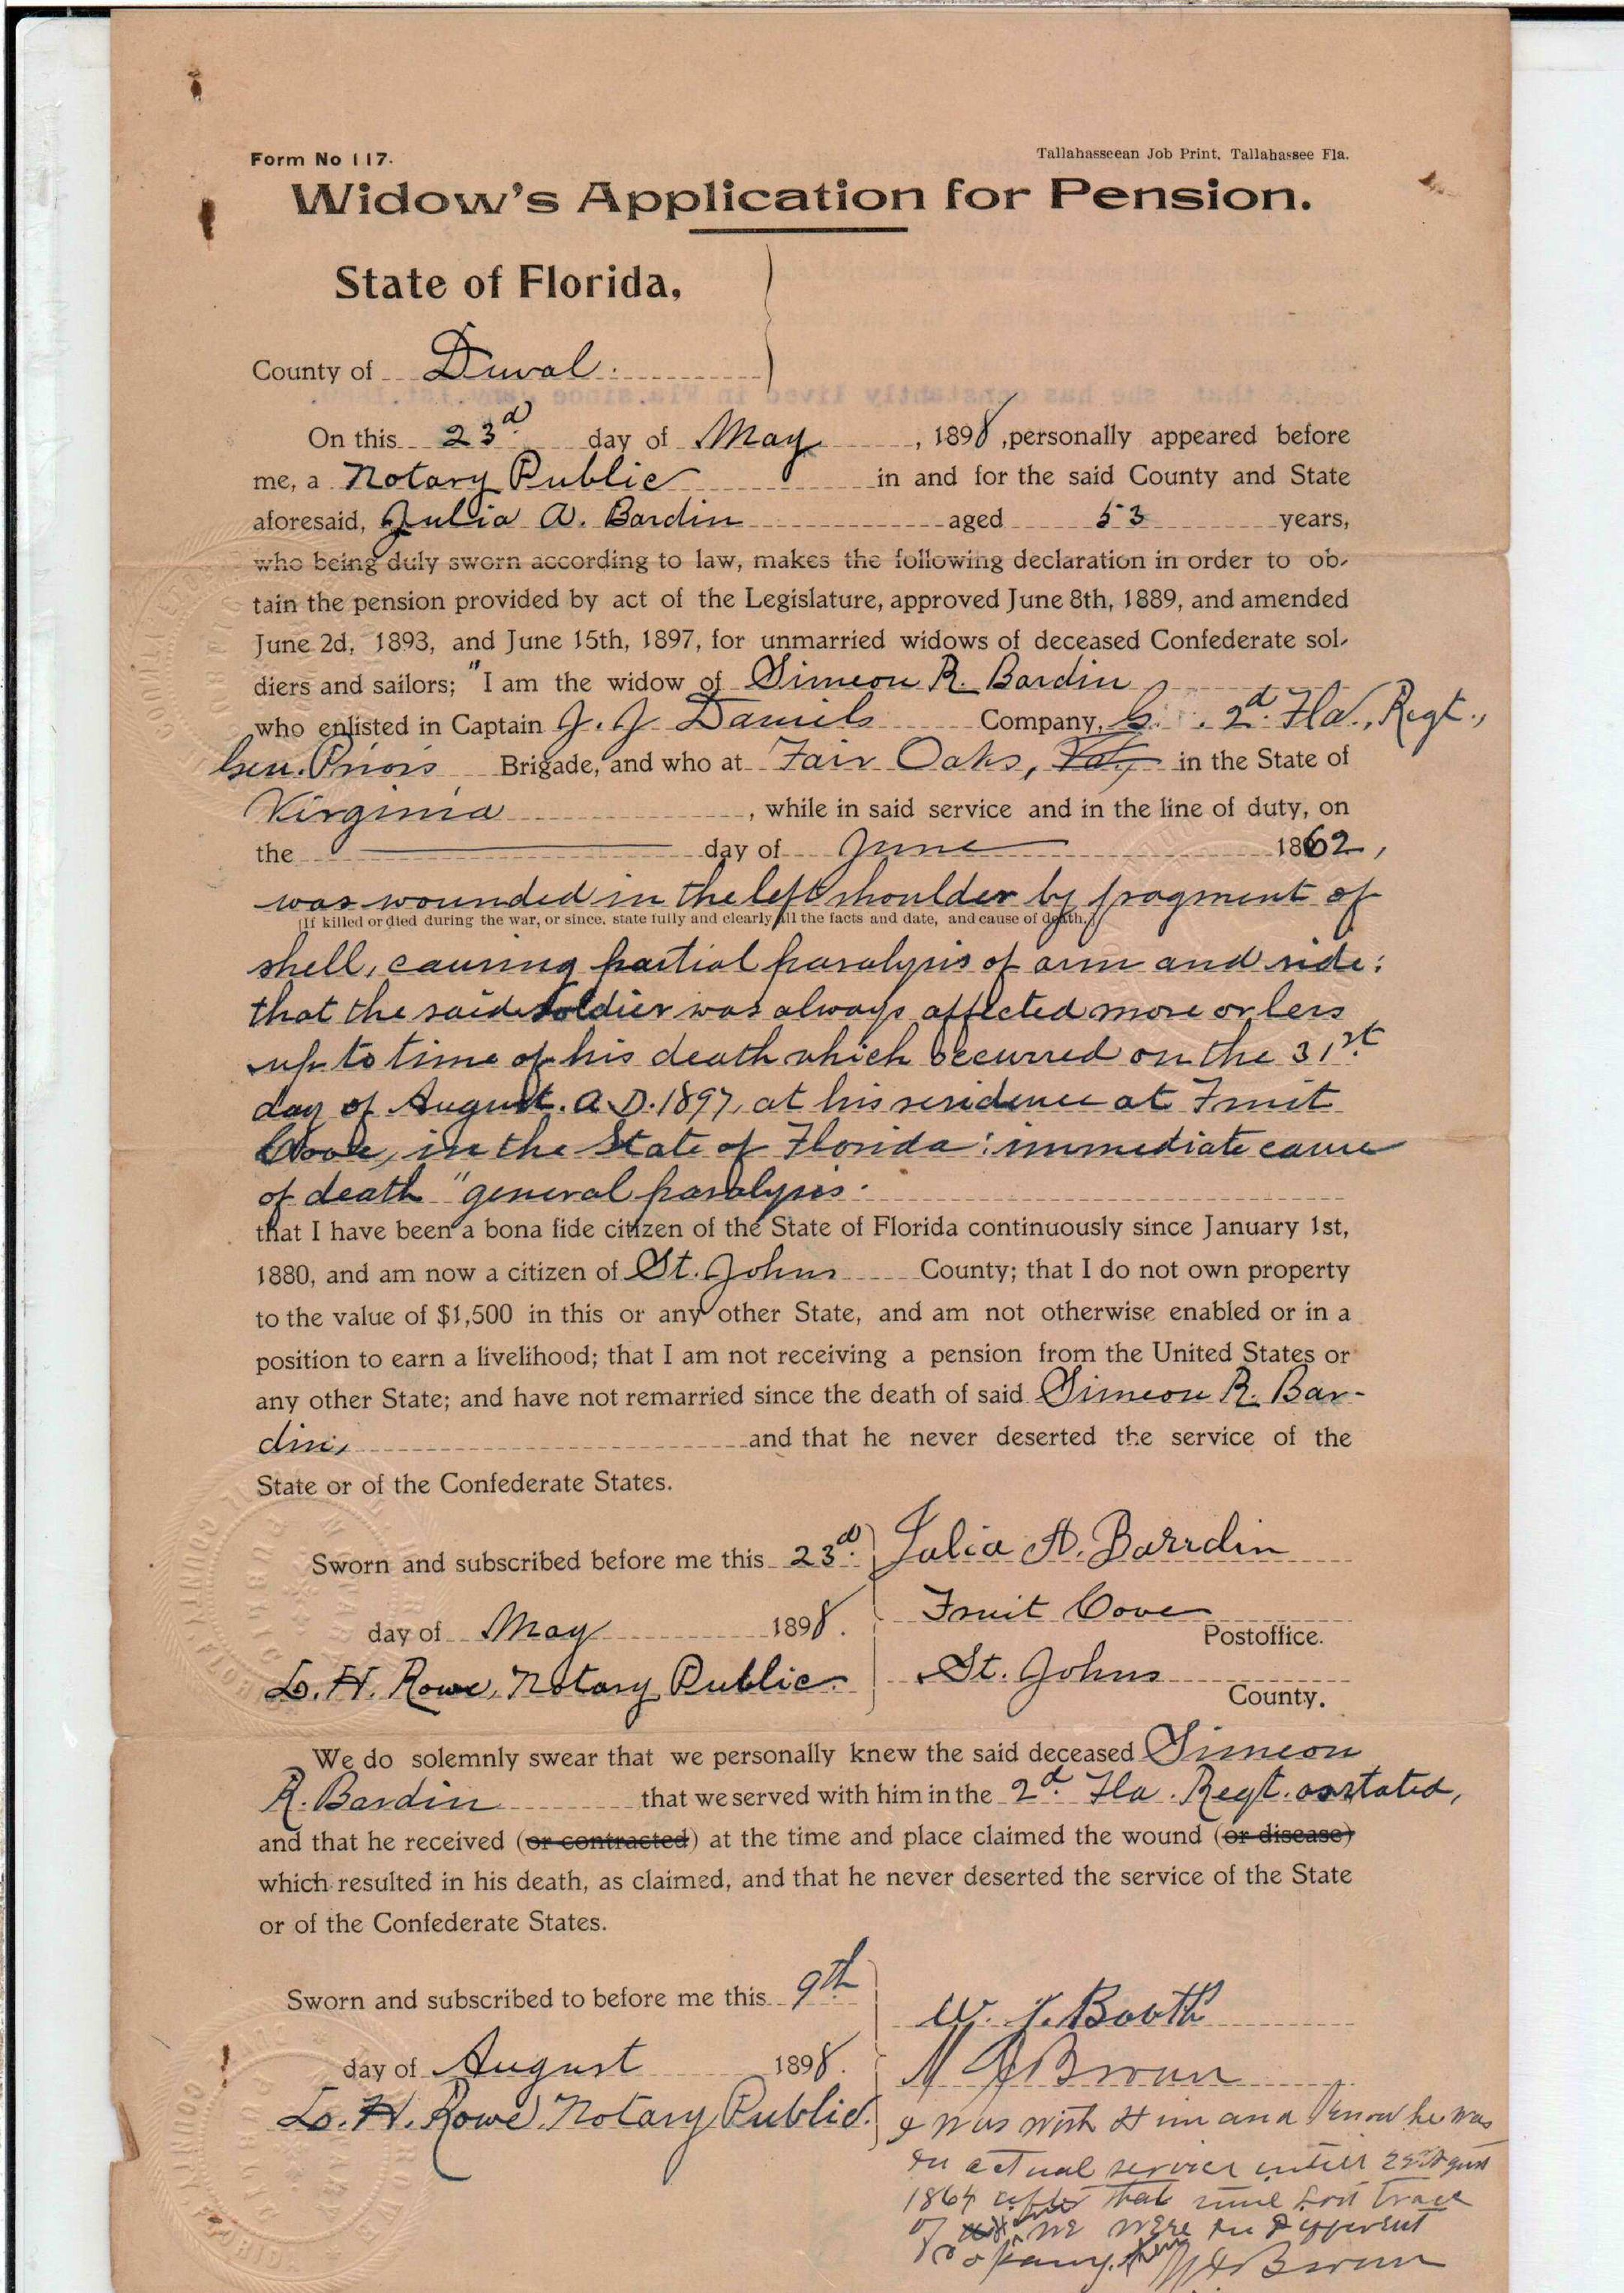 Form No 117.
Tallahasseean Job Print, Tallahassee Fla.
Widow's Application for Pension.
State of Florida,
County of Duval.
On this 23d. day of May, 1898, personally appeared before
me, a Notary Public in and for the said County and State
aforesaid, Julia A. Bardin aged 53 years,
who being duly sworn according to law, makes the following declaration in order to ob-
tain the pension provided by act of the Legislature, approved June 8th, 1889, and amended
June 2d, 1893, and June 15th, 1897, for unmarried widows of deceased Confederate sol-
diers and sailors; "I am the widow of Simeon R. Bardin
who enlisted in Captain J. J. Daniels Company, 2d. Fla., Regt.,
Gen. Priors Brigade, and who at Fair Oaks, in the State of
Virginia, while in said service and in the line of duty, on
the day of June 1862,
was wounded in the left shoulder by fragment of
(If killed or died during the war, or since, state fully and clearly all the facts and date, and cause of death.)
shell, causing partial paralysis of arm and side;
that the said soldier was always affected more or less
up to time of his death which occurred on the 31st
day of August. A.D. 1897, at his residence at Fruit
Cove, in the State of Florida; immediate cause
of death "general paralysis.
that I have been a bona fide citizen of the State of Florida continuously since January 1st,
1880, and am now a citizen of St. Johns County; that I do not own property
to the value of $1,500 in this or any other State, and am not otherwise enabled or in a
position to earn a livelihood; that I am not receiving a pension from the United States or
any other State; and have not remarried since the death of said Simeon R. Bar-
din, and that he never deserted the service of the
State or of the Confederate States.
Sworn and subscribed before me this 23d.
day of May 1898.
L. H. Rowe, Notary Public.
Julia A. Barrdin
Fruit Cove
Postoffice.
St. Johns
County.
We do solemnly swear that we personally knew the said deceased Simeon
R. Bardin that we served with him in the 2d. Fla. Regt. as stated,
and that he received (or contracted) at the time and place claimed the wound (or disease)
which resulted in his death, as claimed, and that he never deserted the service of the State
or of the Confederate States.
Sworn and subscribed to before me this 9th
day of August 1898.
L. H. Rowe, Notary Public.
W. J. Booth
Brown
I was with Him and Know he was
in actual service untill August
1864 after that time lost trace
of we were in Different
Company. Brown